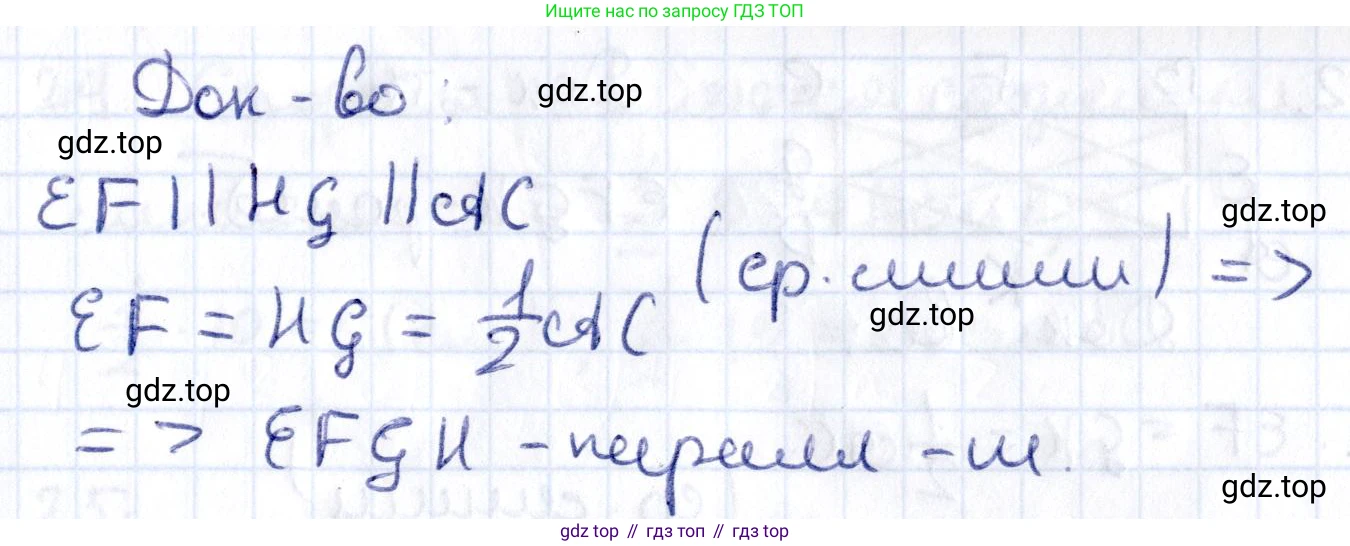 Ищите нас по запросу ГДЗ ТОП
Док-во:
gdz.top
gdz.top
EF || HG || AC
gdz.top
(ср. линии) =>
EF = HG = 1/2 AC
gdz.top
gdz.top
=> EFGH - паралл-м.
gdz.top
gdz.top // гдз топ // gdz top